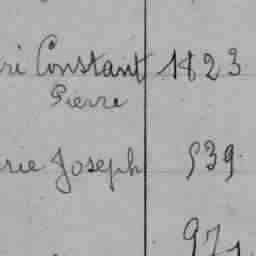 ri Constant 1823
Pierre
rie Joseph 539
971